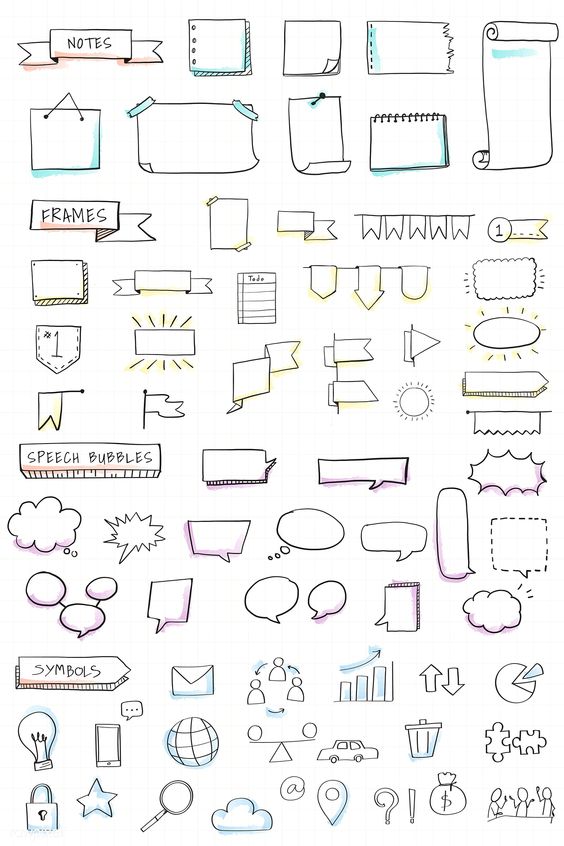 NOTES
FRAMES
1
Todo
#1
SPEECH BUBBLES
SYMBOLS
@
? !
$